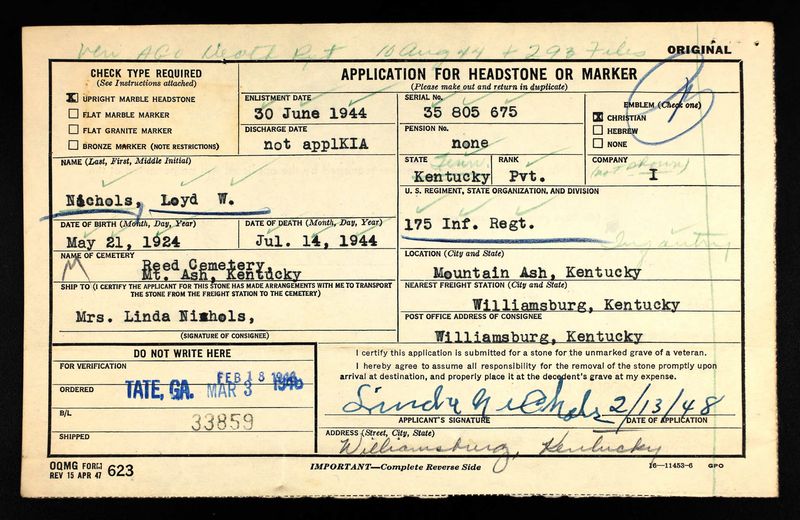 Veri AGO Death Rpt 10 Aug 44 + 293 Files
ORIGINAL
CHECK TYPE REQUIRED
(See Instructions attached)
X UPRIGHT MARBLE HEADSTONE
FLAT MARBLE MARKER
FLAT GRANITE MARKER
BRONZE MARKER (NOTE RESTRICTIONS)
APPLICATION FOR HEADSTONE OR MARKER
(Please make out and return in duplicate)
ENLISTMENT DATE
30 June 1944
SERIAL No.
35 805 675
EMBLEM (Check one)
X CHRISTIAN
HEBREW
NONE
DISCHARGE DATE
not applKIA
PENSION No.
none
NAME (Last, First, Middle Initial)
Nichols, Loyd W.
STATE
Tenn.
Kentucky
RANK
Pvt.
COMPANY
(not shown)
I
U. S. REGIMENT, STATE ORGANIZATION, AND DIVISION
175 Inf. Regt.
Infantry
DATE OF BIRTH (Month, Day, Year)
May 21, 1924
DATE OF DEATH (Month, Day, Year)
Jul. 14, 1944
NAME OF CEMETERY
Reed Cemetery
Mt. Ash, Kentucky
LOCATION (City and State)
Mountain Ash, Kentucky
SHIP TO (I CERTIFY THE APPLICANT FOR THIS STONE HAS MADE ARRANGEMENTS WITH ME TO TRANSPORT
THE STONE FROM THE FREIGHT STATION TO THE CEMETERY)
Mrs. Linda Nichols,
(SIGNATURE OF CONSIGNEE)
NEAREST FREIGHT STATION (City and State)
Williamsburg, Kentucky
POST OFFICE ADDRESS OF CONSIGNEE
Williamsburg, Kentucky
DO NOT WRITE HERE
FOR VERIFICATION
FEB 18 1948
ORDERED
TATE, GA. MAR 3
B/L
33859
SHIPPED
I certify this application is submitted for a stone for the unmarked grave of a veteran.
I hereby agree to assume all responsibility for the removal of the stone promptly upon
arrival at destination, and properly place it at the decedent's grave at my expense.
Linda Nichols 2/13/48
APPLICANT'S SIGNATURE DATE OF APPLICATION
ADDRESS (Street, City, State)
Williamsburg, Kentucky
OQMG FORM 623
REV 15 APR 47
IMPORTANT—Complete Reverse Side
16—11453-6 GPO